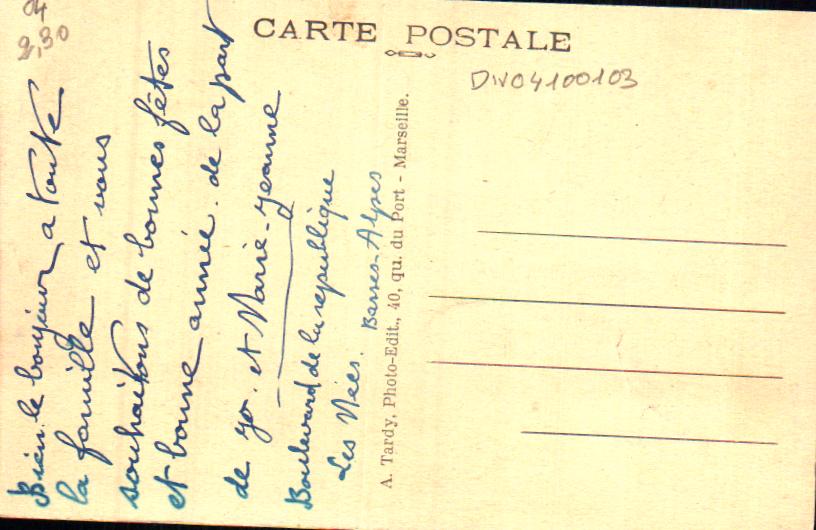 04
2,30
CARTE POSTALE
DIV04100103
Bien le bonjour a toute
la famille et vous
souhaitons de bonnes fêtes
et bonne année. de la part
de yo. et Marie-Jeanne
Boulevard de la republique
Les Mées. Basses-Alpes
A. Tardy, Photo-Edit., 40, qu. du Port - Marseille.